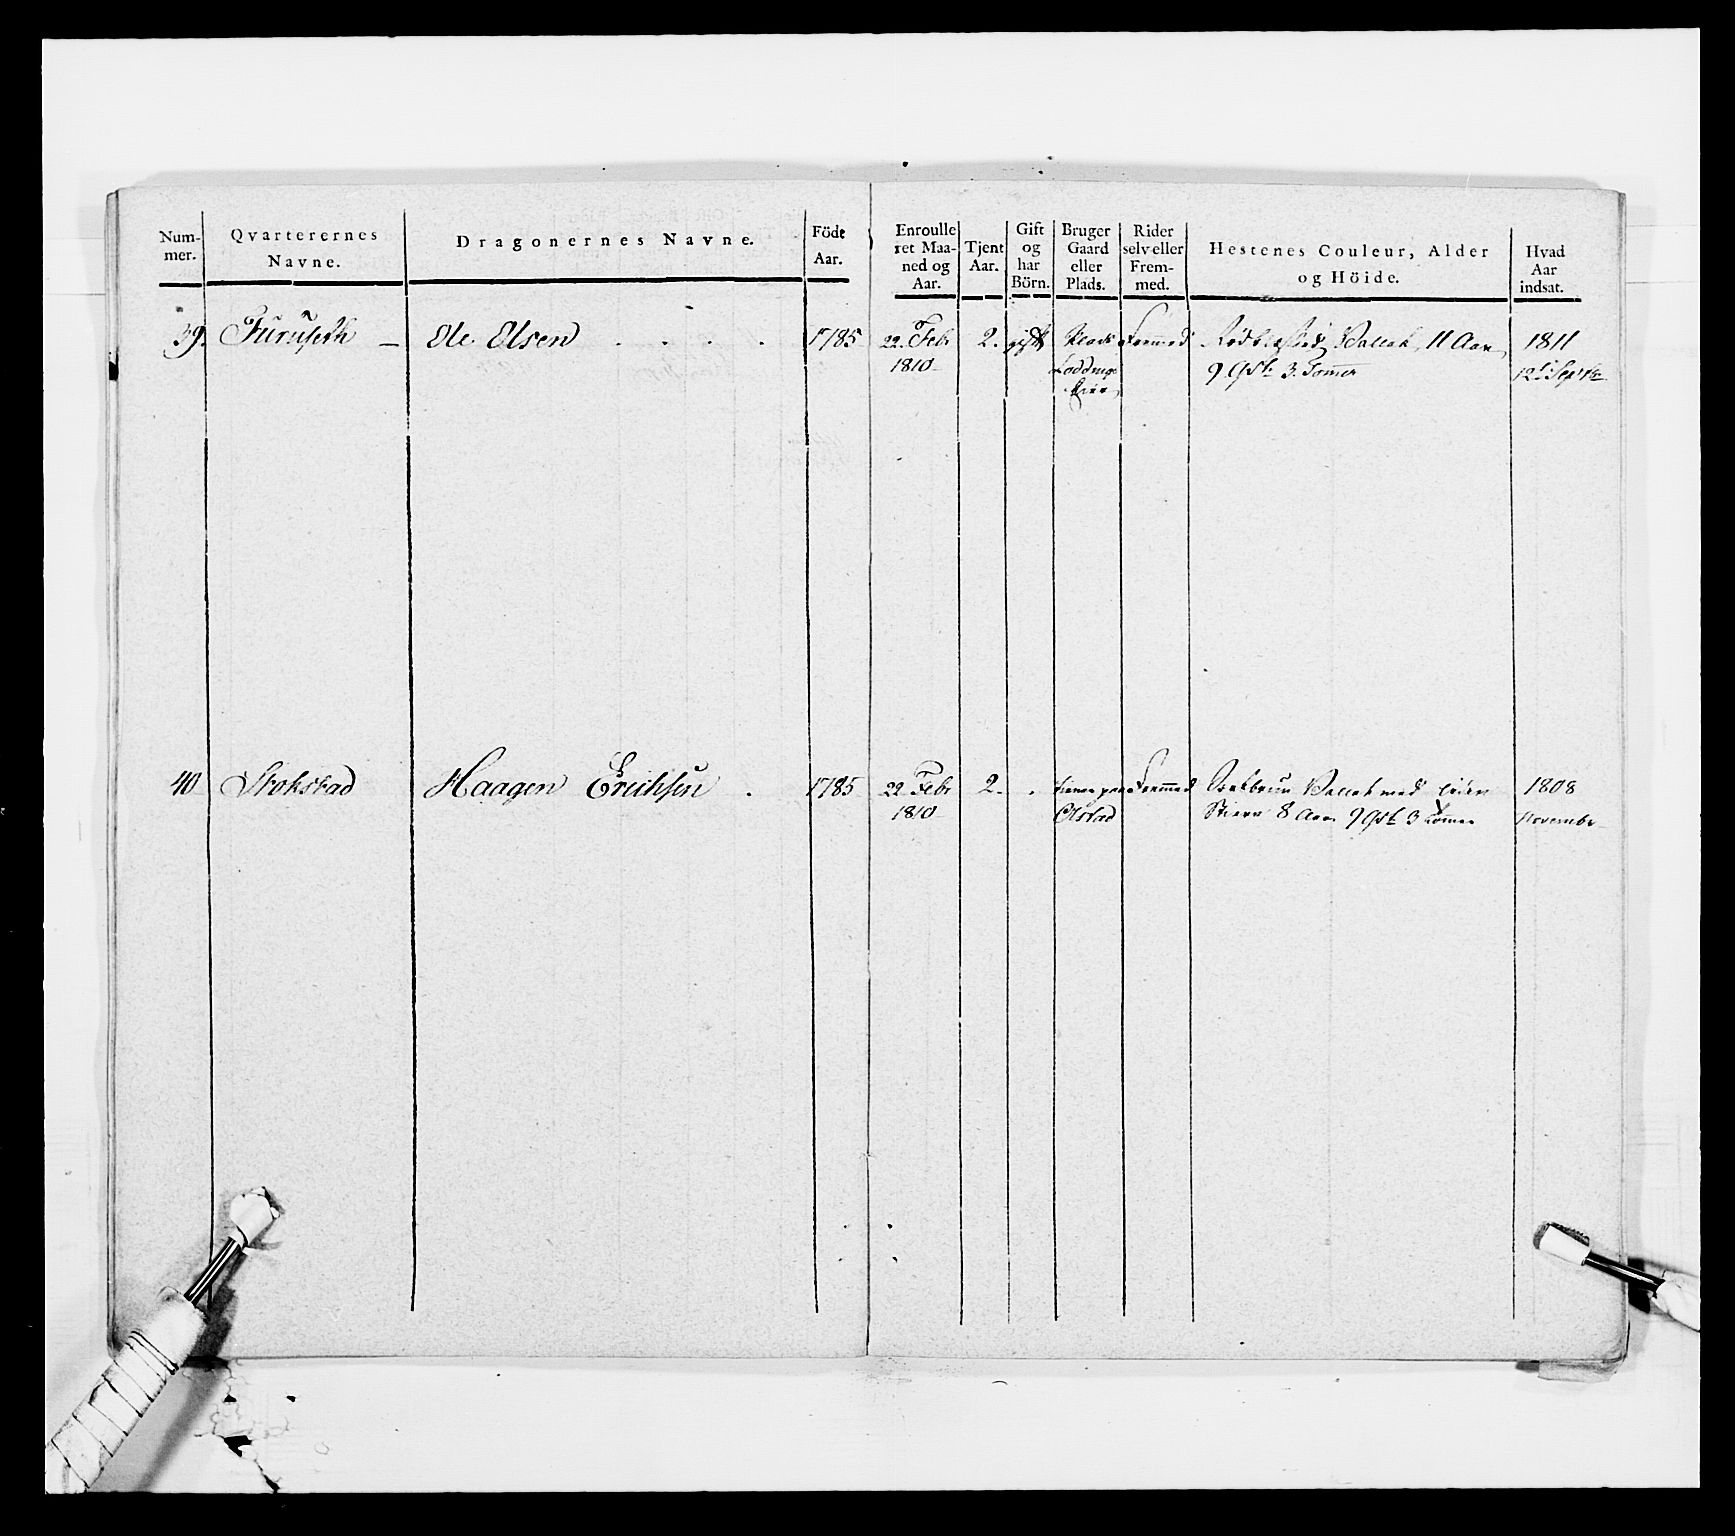 Num-
mer.
Qvarterernes
Navne.
Dragonernes Navne.
Föde
Aar.
Enroulle
ret Maa-
ned og
Aar.
Tjent
Aar.
Gift
og
har
Börn.
Bruger
Gaard
eller
Plads.
Rider
selv eller
Frem-
med.
Hestenes Couleur, Alder
og Höide.
Hvad
Aar
indsat.
39. Furuseth – Ole Olsen . . . . 1785 22. Febr 2. gift Plads Fremmed Vallak 11 Aar 1811
1810 9 Qvt: 3. Tommer 12te Septbr
40 Stokstad Haagen Erichsen . 1785 22. Febr 2. . tiener paa Fremmed Vallak med liden 1808
1810 Olstad Stiern 8 Aar 9 Qvt 3 Tommer November